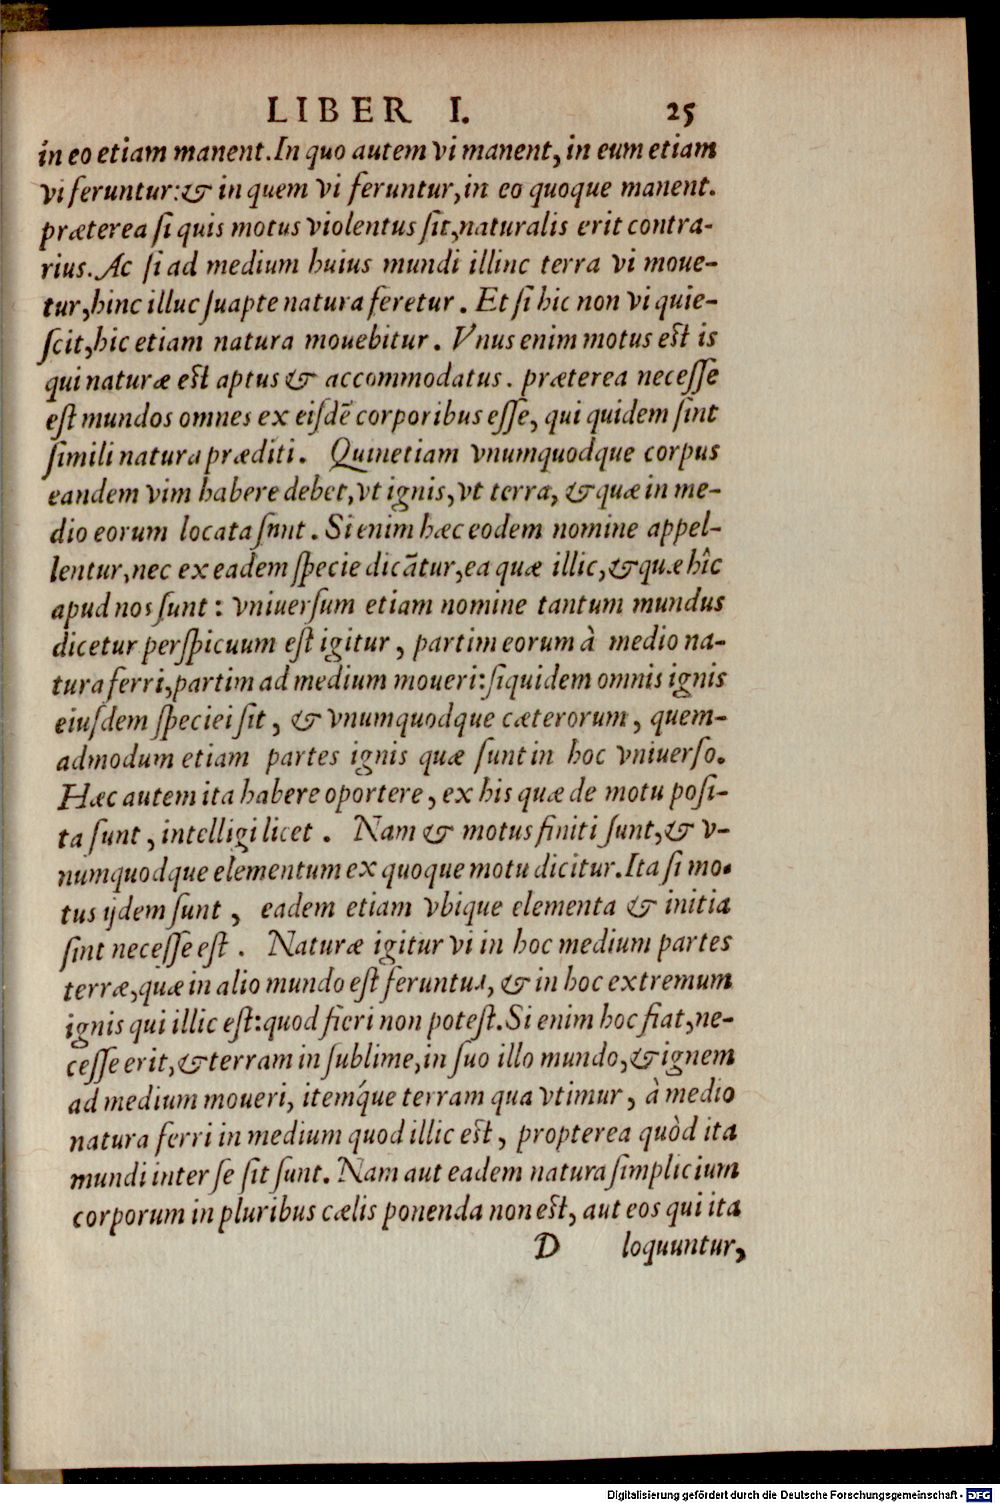 LIBER I. 25
in eo etiam manent. In quo autem vi manent, in eum etiam
vi feruntur: & in quem vi feruntur, in eo quoque manent.
præterea ſi quis motus violentus ſit, naturalis erit contra-
rius. Ac ſi ad medium huius mundi illinc terra vi moue-
tur, hinc illuc ſuapte natura feretur. Et ſi hic non vi quie-
ſcit, hic etiam natura mouebitur. Vnus enim motus eſt is
qui naturæ eſt aptus & accommodatus. præterea neceſſe
eſt mundos omnes ex eiſdē corporibus eſſe, qui quidem ſint
ſimili natura præditi. Quinetiam vnumquodque corpus
eandem vim habere debet, vt ignis, vt terra, & quæ in me-
dio eorum locata ſunt. Si enim hæc eodem nomine appel-
lentur, nec ex eadem ſpecie dicātur, ea quæ illic, & quæ hîc
apud nos ſunt: vniuerſum etiam nomine tantum mundus
dicetur perſpicuum eſt igitur, partim eorum à medio na-
tura ferri, partim ad medium moueri: ſiquidem omnis ignis
eiuſdem ſpeciei ſit, & vnumquodque cæterorum, quem-
admodum etiam partes ignis quæ ſunt in hoc vniuerſo.
Hæc autem ita habere oportere, ex his quæ de motu poſi-
ta ſunt, intelligi licet. Nam & motus finiti ſunt, & v-
numquodque elementum ex quoque motu dicitur. Ita ſi mo-
tus ijdem ſunt, eadem etiam vbique elementa & initia
ſint neceſſe eſt. Naturæ igitur vi in hoc medium partes
terræ, quæ in alio mundo eſt feruntur, & in hoc extremum
ignis qui illic eſt: quod fieri non poteſt. Si enim hoc fiat, ne-
ceſſe erit, & terram in ſublime, in ſuo illo mundo, & ignem
ad medium moueri, itemq́ue terram qua vtimur, à medio
natura ferri in medium quod illic eſt, propterea quòd ita
mundi inter ſe ſit ſunt. Nam aut eadem natura ſimplicium
corporum in pluribus cælis ponenda non eſt, aut eos qui ita
D loquuntur,
Digitalisierung gefördert durch die Deutsche Forschungsgemeinschaft - DFG